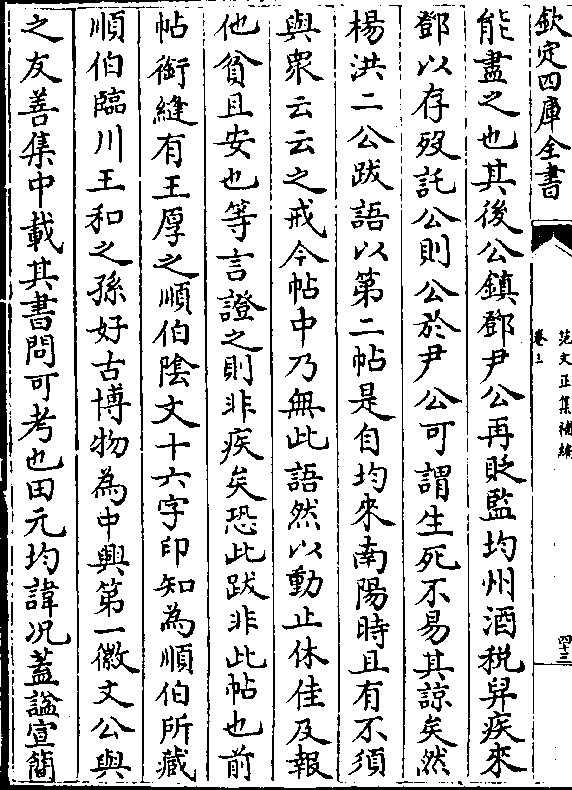 欽定四庫全書
范文正集補編
卷三
四十三
能盡之也其後公鎮鄧尹公再貶監均州酒稅舁疾來
鄧以存歿託公則公於尹公可謂生死不易其諒矣然
楊洪二公跋語以第二帖是自均來南陽時且有不須
與衆云云之戒今帖中乃無此語然以動止休佳及報
他貧且安也等言證之則非疾矣恐此跋非此帖也前
帖銜縫有王厚之順伯陰文十六字印知為順伯所藏
順伯臨川王和之孫好古博物為中興第一徽文公與
之友善集中載其書問可考也田元均諱况蓋謚宣簡